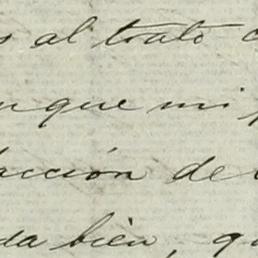 s al trato
unque mi
acción de
da bien, qu